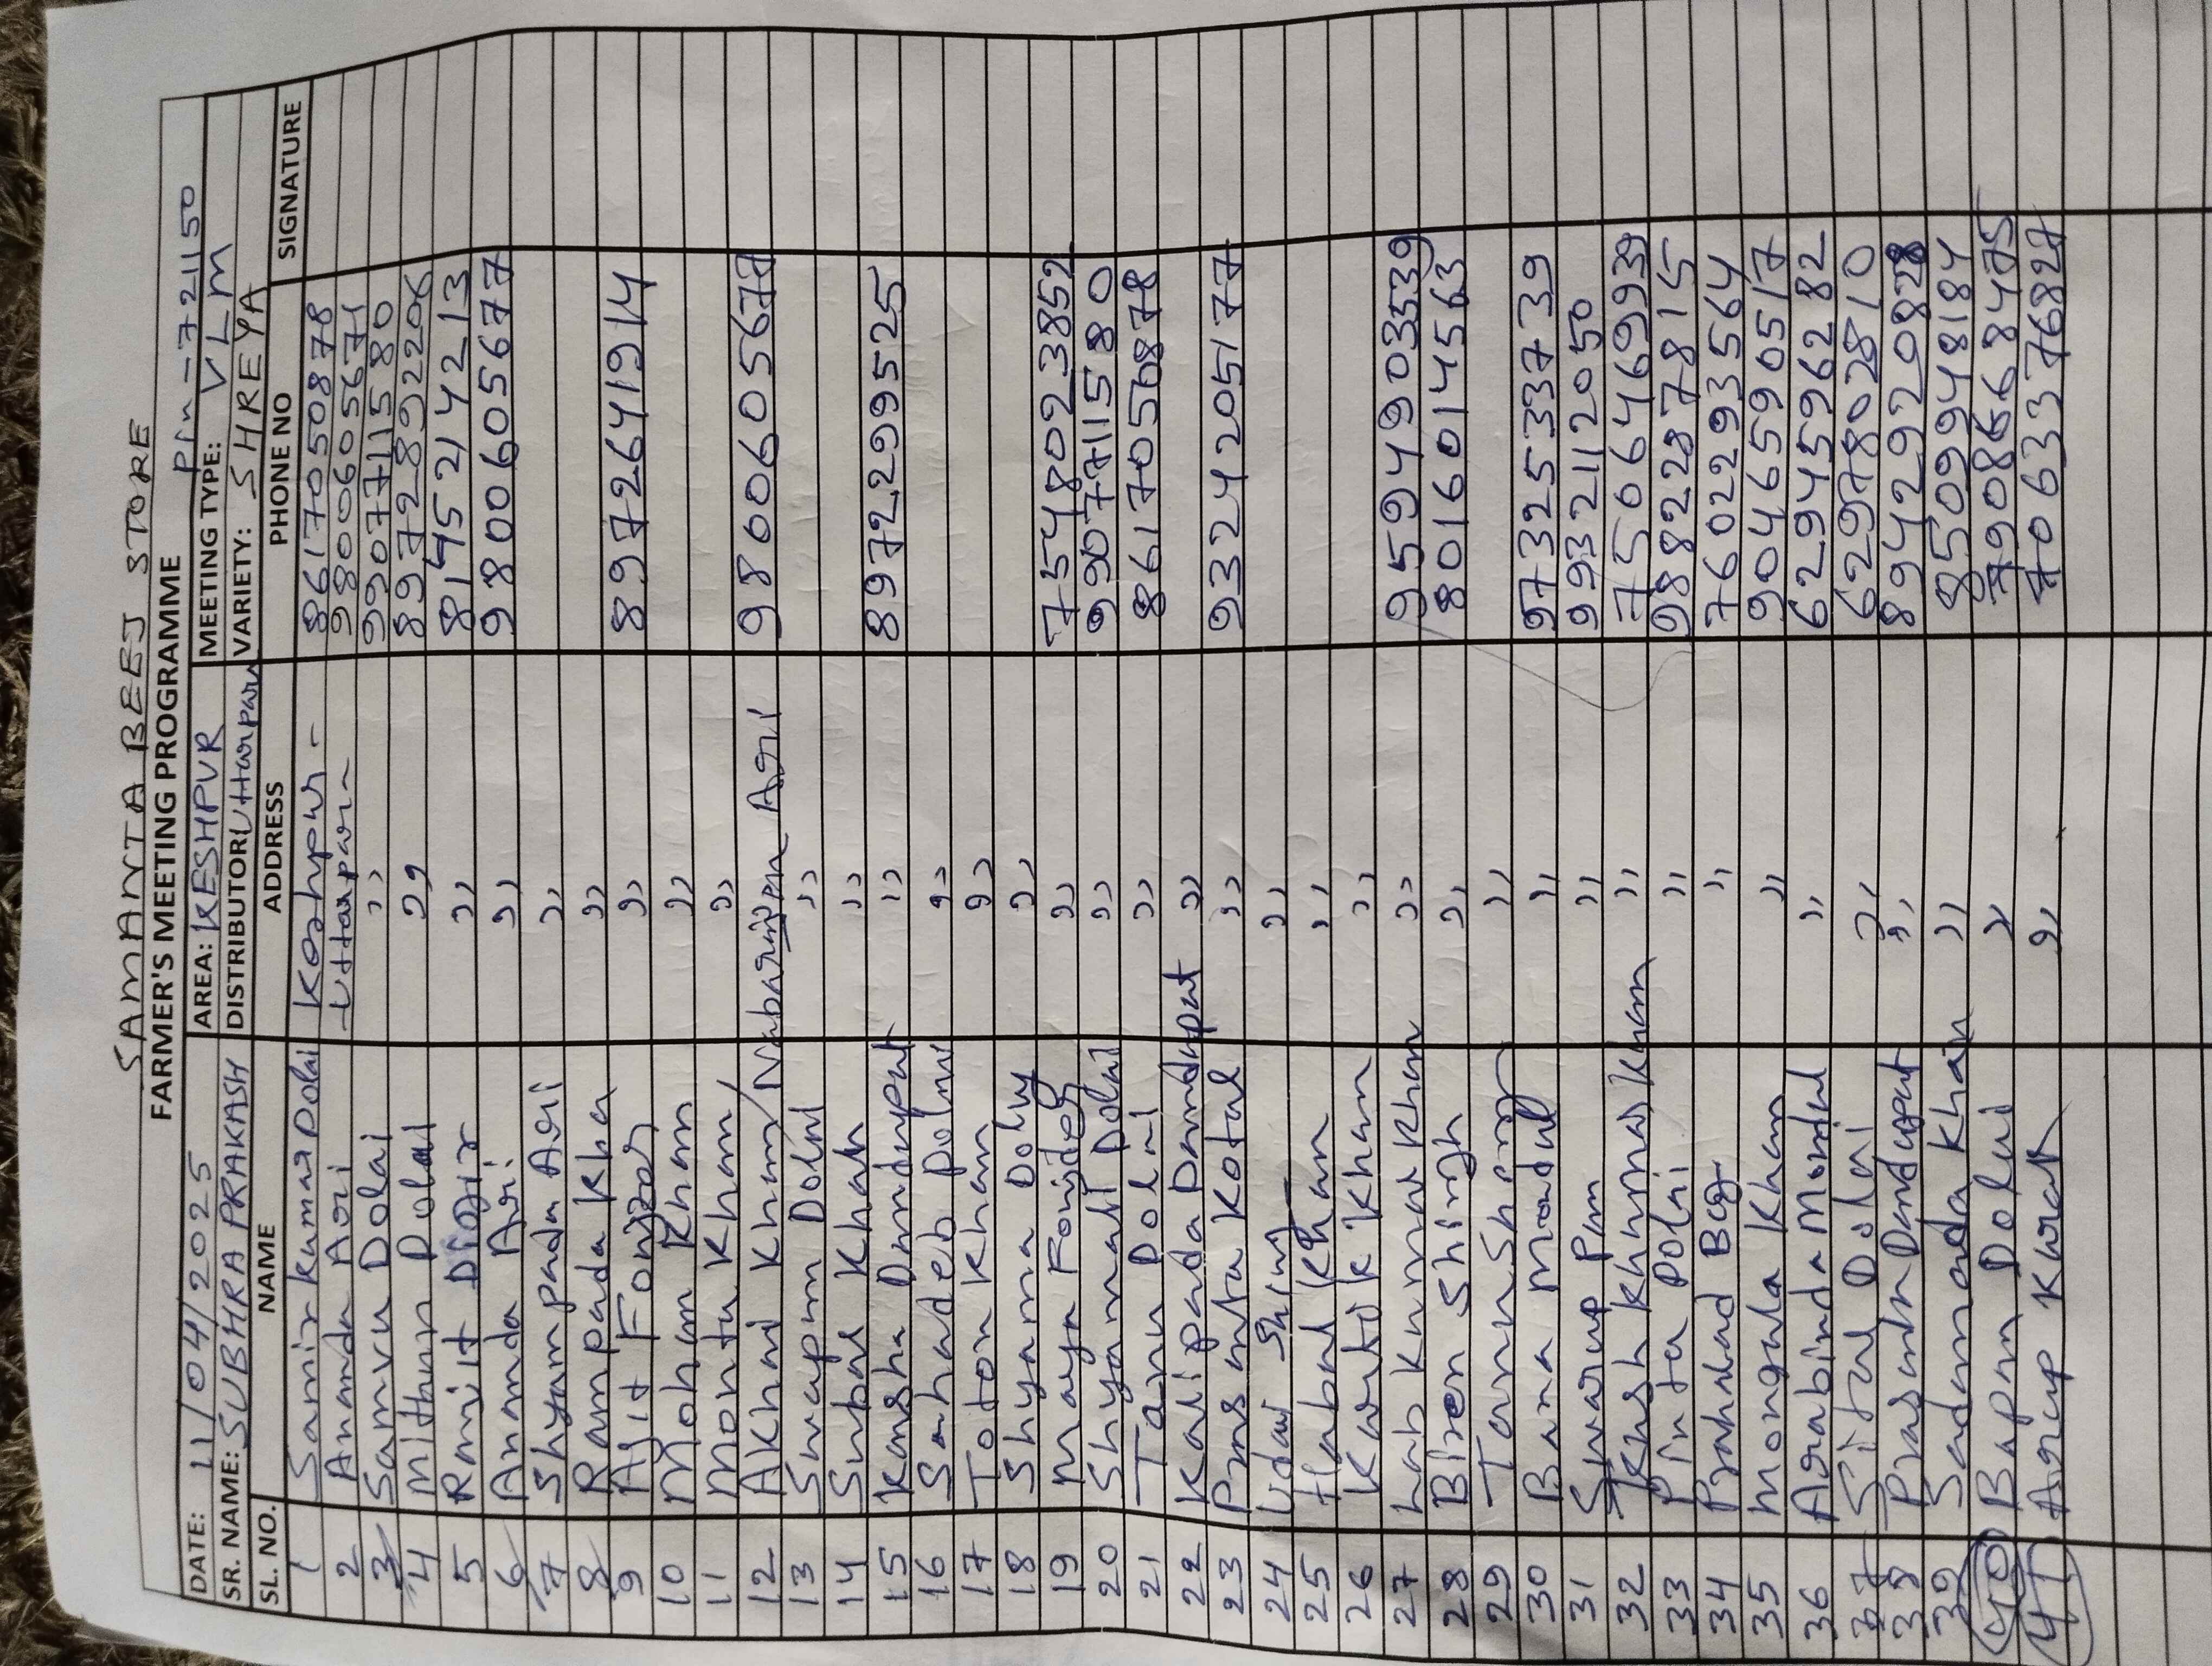 SAMANTA BEEJ STORE
FARMER'S MEETING PROGRAMME Pin-721150
DATE: 11/04/2025 AREA: KESHPUR MEETING TYPE: VLM
SR. NAME: SUBHRA PRAKASH DISTRIBUTOR: Uttarpara VARIETY: SHREYA
SL. NO. NAME ADDRESS PHONE NO SIGNATURE
1 Samir kumar Dolai Keshpur - 8617050878
2 Ananda Aari Uttarpara 9800605671
3 Samru Dolai " 9907711580
4 Mithun Dolai " 8972892206
5 Ranjit Digir " 8145214213
6 Ananda Ari " 9800605677
7 Shyampada Ari "
8 Rampada Kha "
9 Ajit " 8972641914
10 Mohan Khan "
11 Montu Khan "
12 Akhani Khan/ Nabarun Aari 9800605677
13 Swapan Dolui "
14 Subal Khan "
15 Kansha Dandapat " 8972299525
16 Sahadeb Dolui "
17 Toton Khan "
18 Shyama Doluy "
19 Maya " 7548023852
20 Shyamali Dolui " 9907711580
21 Tanu Dolui " 8617050878
22 Kalipada Dandapat "
23 Prasanta Kotal " 9324205177
24 Udai Shing "
25 Habal Khan "
26 Kartik Khan "
27 Lab Kumar Khan " 9594903539
28 Biren Shingh " 8016014563
29 "
30 Bana Mondal " 9732533739
31 Swarup Pan " 9932112050
32 Khan " 7506469939
33 Pinta Dolai " 9882287815
34 Prahalad Bag " 7602293564
35 Mongala Khan " 9046590517
36 Arabinda Mondal " 6294596282
37 Sital Dolai " 6297802810
38 Prasanta Dandapat " 8942920828
39 Sadananda Khan " 8509948184
40 Bapan Dolui " 7908668475
41 Arup " 7063376827